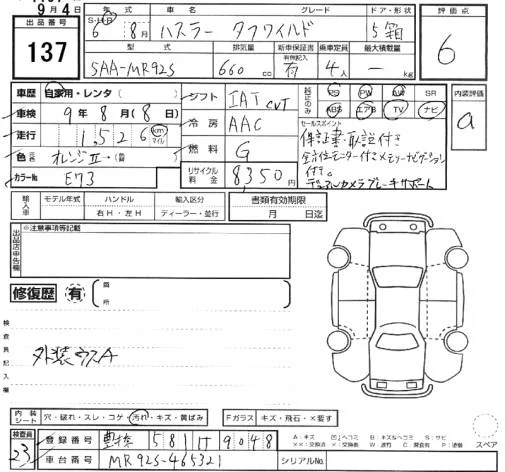 9月4日
出品番号
137
年式 車名 グレード ドア・形状
6年 8月 ハスラー タフワイルド 5 箱
型式 排気量 新車保証書 乗車定員 最大積載量
5AA-MR92S 660cc 有 4人 — kg
評価点
6
内装評価
a
車歴 自家用・レンタ( )
車検 9年8月(8日)
走行 1,526 km マイル
色 元色 オレンジⅡ→(替 )
カラーNo. E73
シフト IAT CVT
冷房 AAC
燃料 G
リサイクル料金 8,350円
PS PW AW SR
ABS エアB TV ナビ
セールスポイント
保証書・取説付き
全方位モニター付きメモリーナビゲーション
付き。
デュアルカメラブレーキサポート
輸入車 モデル年式 ハンドル 輸入区分
右H・左H ディーラー・並行
書類有効期限
月 日迄
出品店申告欄
※注意事項等記載
修復歴 有 箇所
検査員記入欄
外装ウスA
内装シート 穴・破れ・スレ・コゲ・汚れ・キズ・黄ばみ
Fガラス キズ・飛石・×要す
スペア
検査員
23
登録番号 豊橋 581 け 9048
車台番号 MR92S-465321
シリアルNo.